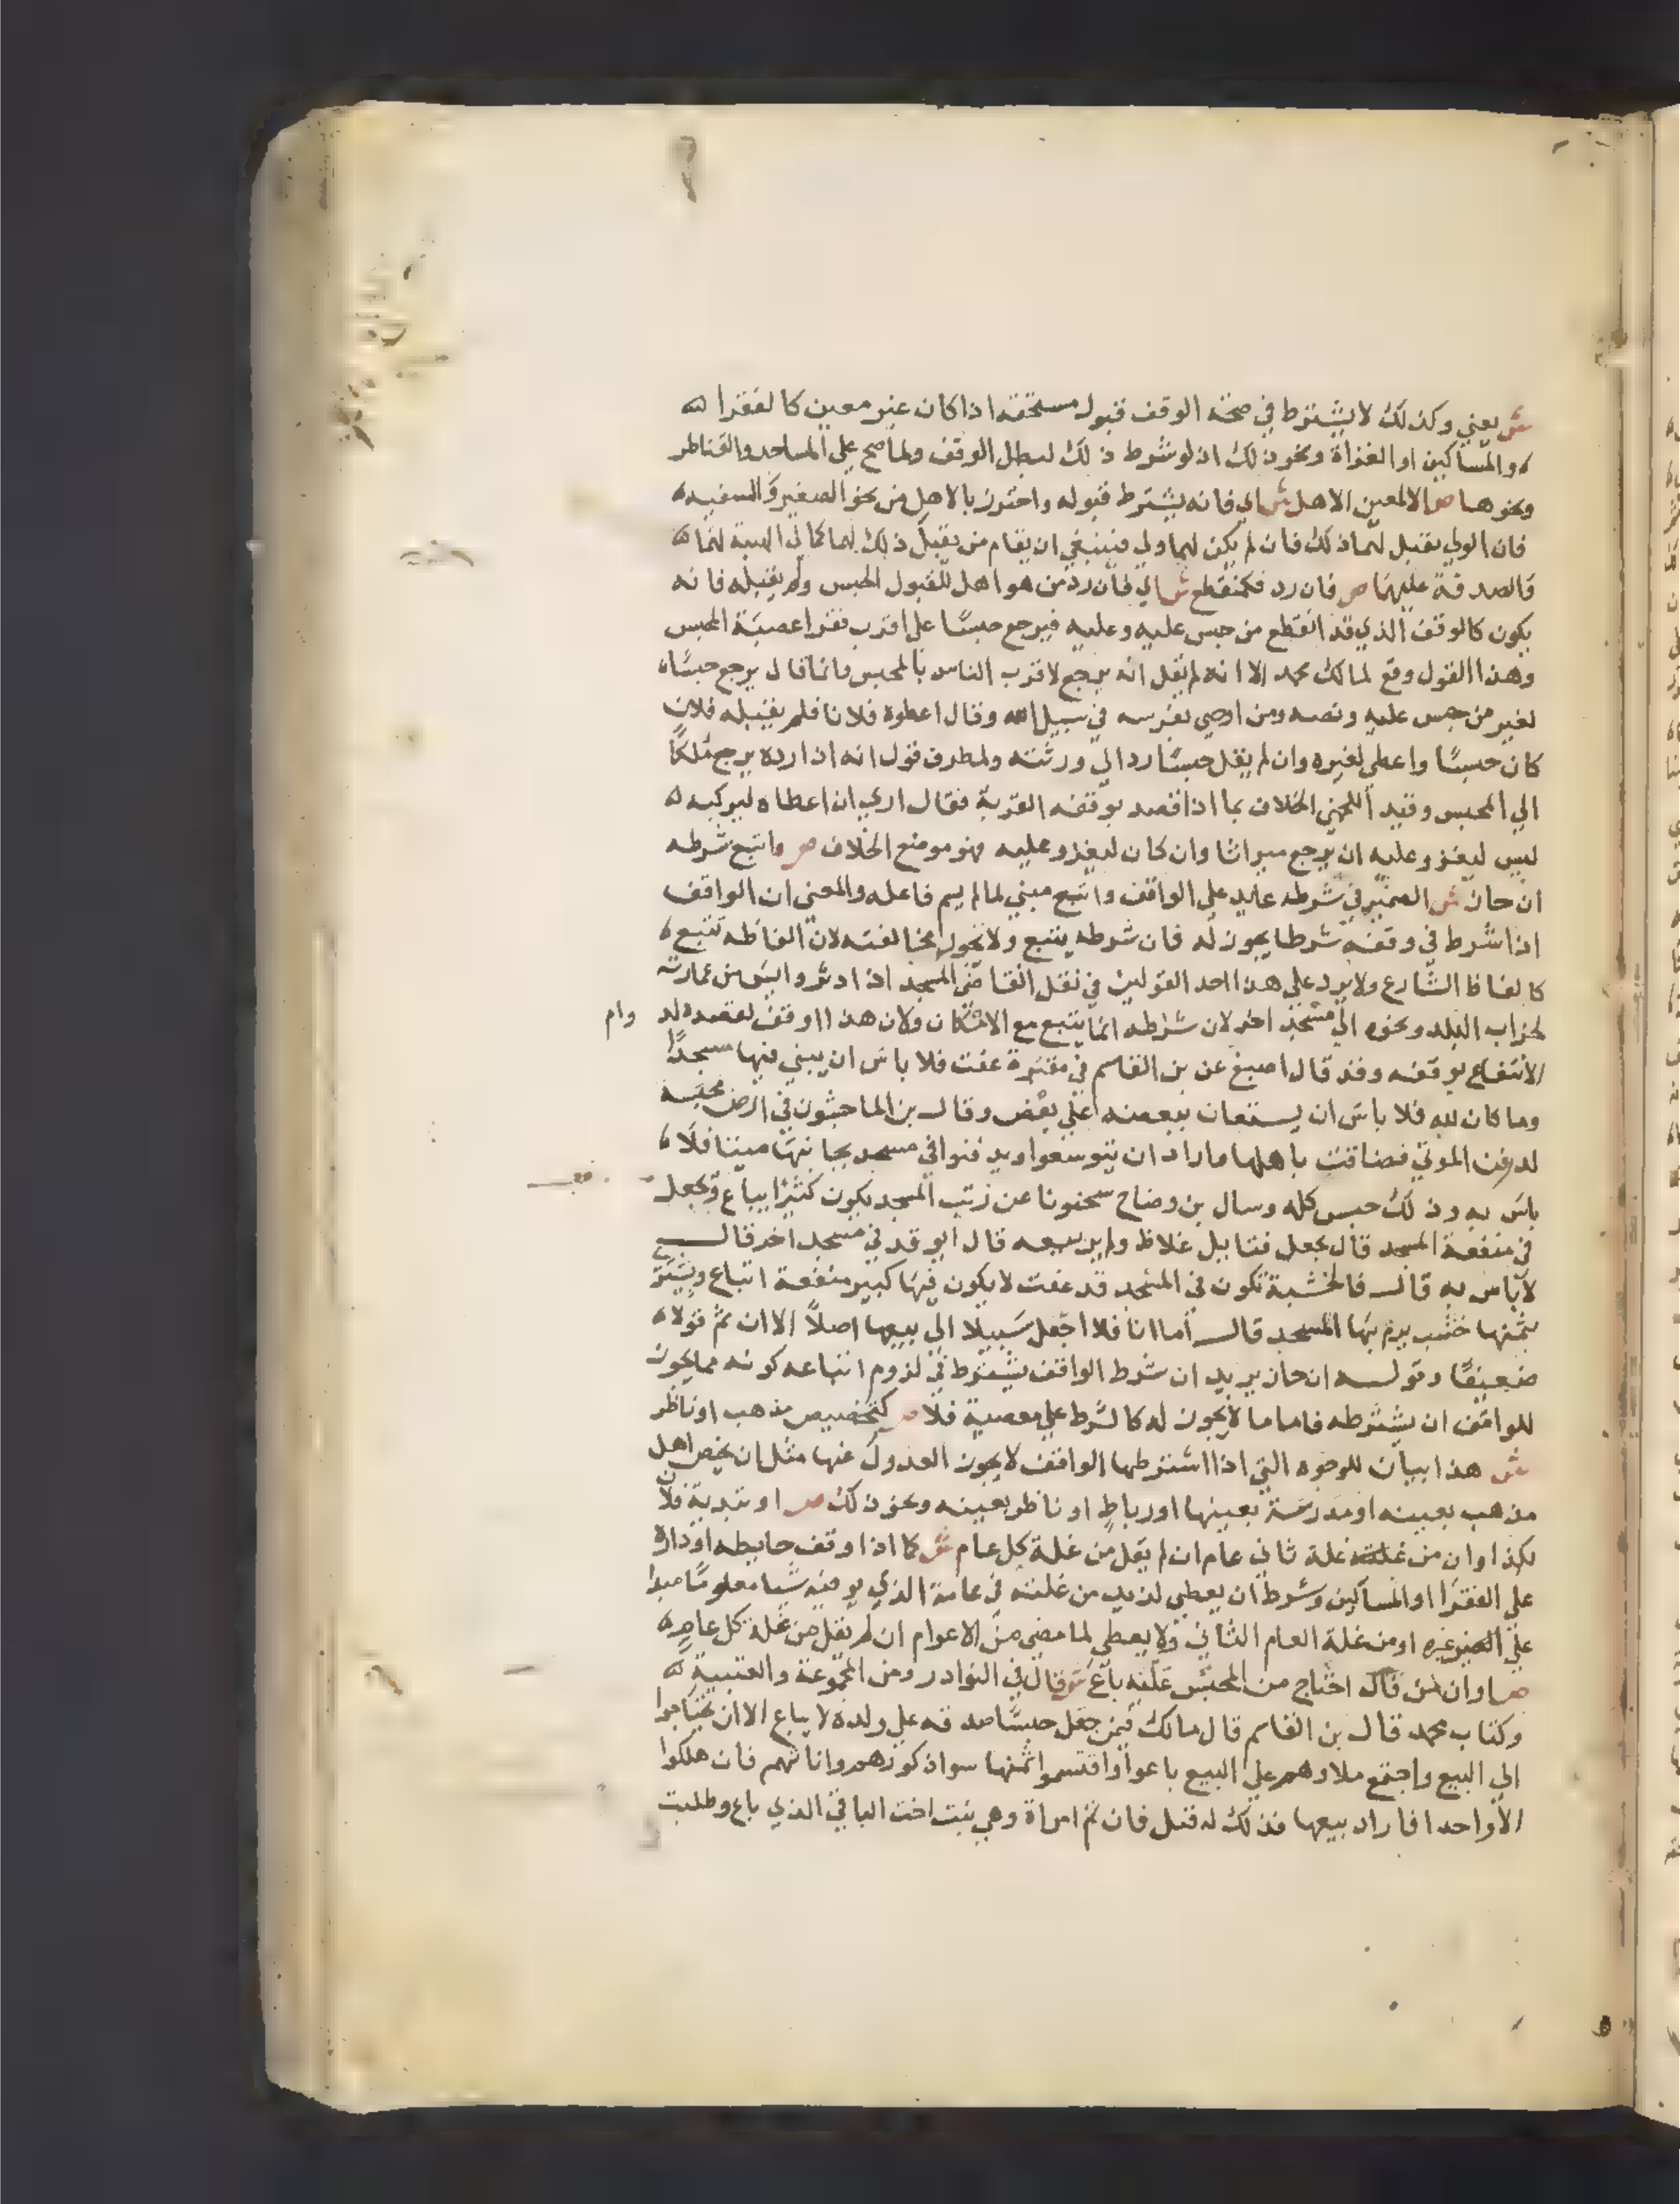 ش يعني وكذلك لا يشترط في صحة الوقف قبول مستحقه اذا كان غير معين كالفقرا
والمساكين او الغزاة ونحو ذلك اذ لو شرط ذلك لبطل الوقف ولما صح علي المساجد والقناطر
ونحوها ص الا لمعين الاهل ش اي فانه يشترط قبوله واحترز بالاهل من نحو الصغير والسفيه
فان الولي يقبل لهما ذلك فان لم يكن لهما ولي فينبغي ان يقام من يقبل ذلك لهما كما في الهبة لهما
والصدقة عليهما ص فان رد فكمنقطع ش اي فان رد من هو اهل للقبول الحبس ولم يقبله فانه
يكون كالوقف الذي قد انقطع من حبس عليه وعليه فيرجع حبسًا علي اقرب فقرا عصبة المحبس
وهذا القول وقع لمالك محمد الا انه لم يقل انه يرجع لاقرب الناس بالمحبس وانما قال يرجع حبسًا
لغير من حبس عليه ونصه ومن اوصي بفرسه في سبيل الله وقال اعطوه فلانا فلم يقبله فلان
كان حبسًا واعطي لغيره وان لم يقل حبسًا رد الي ورثته ولمطرف قول انه اذا رده يرجع ملكًا
الي المحبس وقيد اللخمي الخلاف بما اذا قصد بوقفه القربة فقال اري ان اعطاه ليركبه
ليس ليغزو عليه ان يرجع ميراثا وان كان ليغزو عليه فهو موضع الخلاف ص واتبع شرطه
ان جاز ش الضمير في شرطه عايد علي الواقف واتبع مبني لما لم يسم فاعله والمعني ان الواقف
اذا شرط في وقفه شرطا يجوز له فان شرطه يتبع ولا يجوز مخالفته لان الفاظه تتبع
كالفاظ الشارع ولا يرد علي هذا احد القولين في نقل انقاض المسجد اذا دثر وايس من عمارته
لخراب البلد ونحوه الي مسجد اخر لان شرطه انما يتبع مع الامكان ولان هذا الوقف لقصده له وام
الانتفاع بوقفه وقد قال اصبغ عن بن القاسم في مقبرة عفت فلا باس ان يبني فيها مسجدًا
وما كان لله فلا باس ان يستعان ببعضه علي بعض وقال بن الماجشون في ارض محبسه
لدفن الموتي فضاقت باهلها فاراد ان يتوسعوا ويدفنوا في مسجد بجانبها ميتا فلا
باس به وذلك حبس كله وسال بن وضاح سحنونا عن زيت المسجد يكون كثيرا يباع ويجعل
في منفعة المسجد قال يجعل فتايل غلاظ ولم ير بيعه قال ايوقد في مسجد اخر قال
لا باس به قال فالخشبة تكون في المسجد قد عفت لا يكون فيها كبير منفعة اتباع ويشتري
بثمنها خشب يرم بها المسجد قال اما انا فلا اجعل سبيلا الي بيعها اصلاً الا ان ثم قولا
ضعيفًا وقوله ان جاز يريد ان شرط الواقف يشترط في لزوم اتباعه كونه مما يجوز
للواقف ان يشترطه فاما ما لا يجوز له كالشرط علي معصية فلا ص كتخصيص مذهب او ناظر
ش هذا بيان للوجوه التي اذا اشترطها الواقف لا يجوز العدول عنها مثل ان يخص اهل
مذهب بعينه او مدرسة بعينها او رباط او ناظر بعينه ونحو ذلك ص او تبدية فلان
بكذا وان من غلة ثاني عام ان لم يقل من غلة كل عام ش كما اذا وقف حايطه او داره
علي الفقرا او المساكين وشرط ان يعطي لزيد من غلته في عامة الذي يوفيه شيا معلومًا مبدا
علي غيره او من غلة العام الثاني ولا يعطي لما مضي من الاعوام ان لم يقل من غلة كل عام
ص او ان من احتاج من المحبس عليه باع ش قال في النوادر ومن المجموعة والعتبية
وكتاب محمد قال بن القاسم قال مالك فيمن جعل حبسًا صدقه علي ولده لا يباع الا ان يحتاجوا
الي البيع واجتمع ملاوهم علي البيع باعوا واقتسموا ثمنها سوا ذكورهم واناثهم فان هلكوا
الا واحدا فاراد بيعها فذلك له قيل فان ثم امراة وهي بنت اخت الباقي الذي باع وطلبت